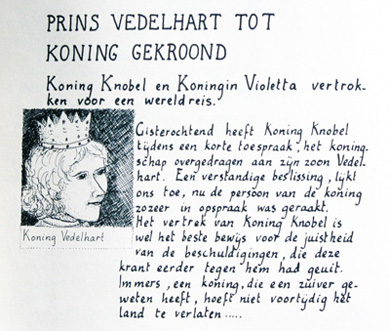 PRINS VEDELHART TOT
KONING GEKROOND
Koning Knobel en Koningin Violetta vertrok-
ken voor een wereldreis.
Gisterochtend heeft Koning Knobel
tijdens een korte toespraak, het koning-
schap overgedragen aan zijn zoon Vedel-
hart. Een verstandige beslissing, lijkt
ons toe, nu de persoon van de koning
zozeer in opspraak was geraakt.
Het vertrek van Koning Knobel is
wel het beste bewijs voor de juistheid
van de beschuldigingen, die deze
krant eerder tegen hem had geuit.
Immers, een koning, die een zuiver ge-
weten heeft, hoeft niet voortijdig het
land te verlaten.....
Koning Vedelhart